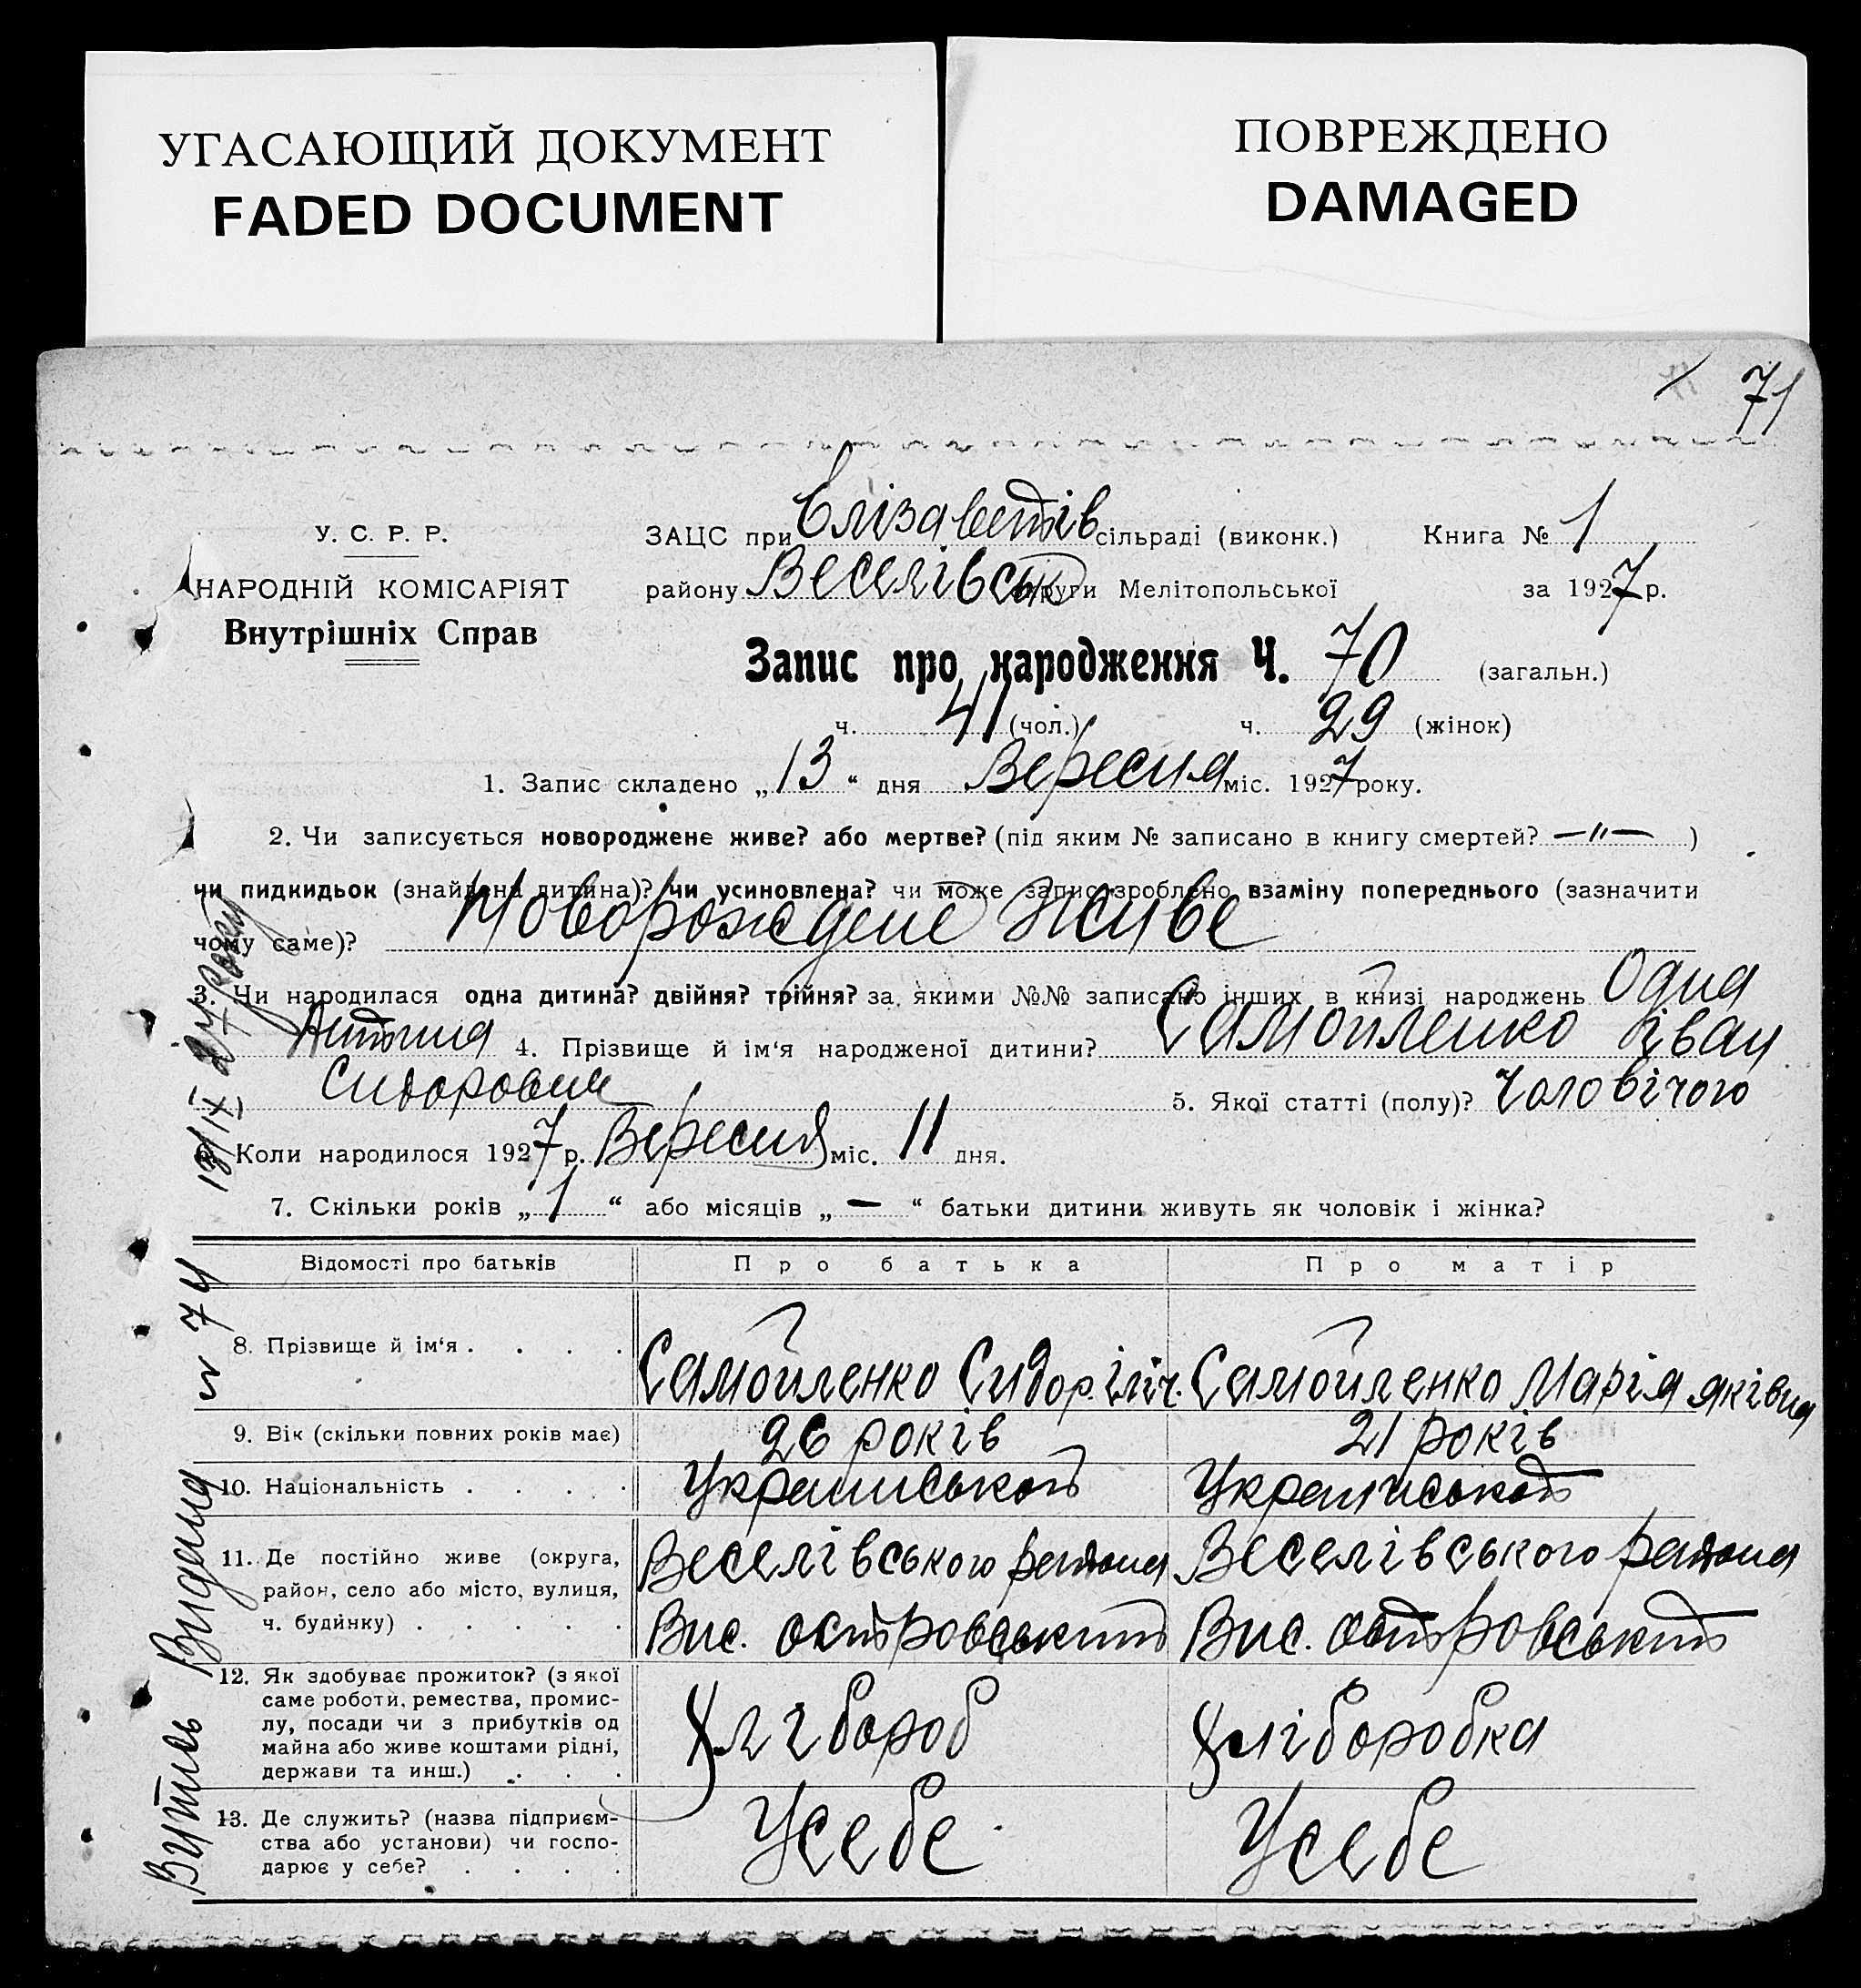 УГАСАЮЩИЙ ДОКУМЕНТ
FADED DOCUMENT
ПОВРЕЖДЕНО
DAMAGED
71
У. С. Р. Р.
НАРОДНІЙ КОМІСАРІЯТ
Внутрішніх Справ
ЗАЦС при Єлізаветів сільраді (виконк.) Книга № 1
району Веселівськ округи Мелітопольської за 1927 р.
Запис про народження Ч. 70 (загальн.)
ч. 41 (чол.) ч. 29 (жінок)
1. Запис складено „ 13 “ дня Вересня міс. 1927 року.
2. Чи записується новороджене живе? або мертве? (під яким № записано в книгу смертей? —"— )
чи пидкидьок (знайдена дитина)? чи усиновлена? чи може запис зроблено взаміну попереднього (зазначити
чому саме)? Новорождене живе
3. Чи народилася одна дитина? двійня? трійня? за якими №№ записано інших в книзі народжень Одна
дитина 4. Прізвище й ім‘я народженої дитини? Самойленко Іван
Сидорович 5. Якої статті (полу)? Чоловічого
6. Коли народилося 1927 р. Вересня міс. 11 дня.
7. Скільки років „ 1 “ або місяців „ — “ батьки дитини живуть як чоловік і жінка?
Відомості про батьків Про батька Про матір
8. Прізвище й ім‘я . . . . Самойленко Сидор. Іліч. Самойленко Марія Яківна
9. Вік (скільки повних років має) 26 років 21 років
10. Національність . . . . . Украинськой Украинськой
11. Де постійно живе (округа,
район, село або місто, вулиця,
ч. будинку) . . . . .
Веселівського района Веселівського района
Вис. Островський Вис. Островський
12. Як здобуває прожиток? (з якої
саме роботи, ремества, промис-
лу, посади чи з прибутків од
майна або живе коштами рідні,
держави та инш.) . . .
Хлібороб Хлiборобка
13. Де служить? (назва підприєм-
ства або установи) чи госпо-
дарює у себе? . . . .
Усебе Усебе
Витяг Видана № 74 13/IX 27 року